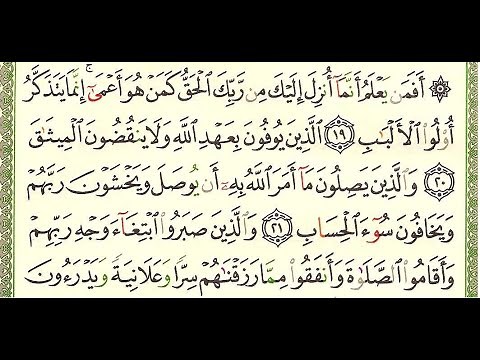 ۞ أَفَمَن يَعْلَمُ أَنَّمَآ أُنزِلَ إِلَيْكَ مِن رَّبِّكَ ٱلْحَقُّ كَمَنْ هُوَ أَعْمَىٰٓ ۚ إِنَّمَا يَتَذَكَّرُ
أُو۟لُوا۟ ٱلْأَلْبَٰبِ ١٩ ٱلَّذِينَ يُوفُونَ بِعَهْدِ ٱللَّهِ وَلَا يَنقُضُونَ ٱلْمِيثَٰقَ
٢٠ وَٱلَّذِينَ يَصِلُونَ مَآ أَمَرَ ٱللَّهُ بِهِۦٓ أَن يُوصَلَ وَيَخْشَوْنَ رَبَّهُمْ
وَيَخَافُونَ سُوٓءَ ٱلْحِسَابِ ٢١ وَٱلَّذِينَ صَبَرُوا۟ ٱبْتِغَآءَ وَجْهِ رَبِّهِمْ
وَأَقَامُوا۟ ٱلصَّلَوٰةَ وَأَنفَقُوا۟ مِمَّا رَزَقْنَٰهُمْ سِرًّا وَعَلَانِيَةً وَيَدْرَءُونَ